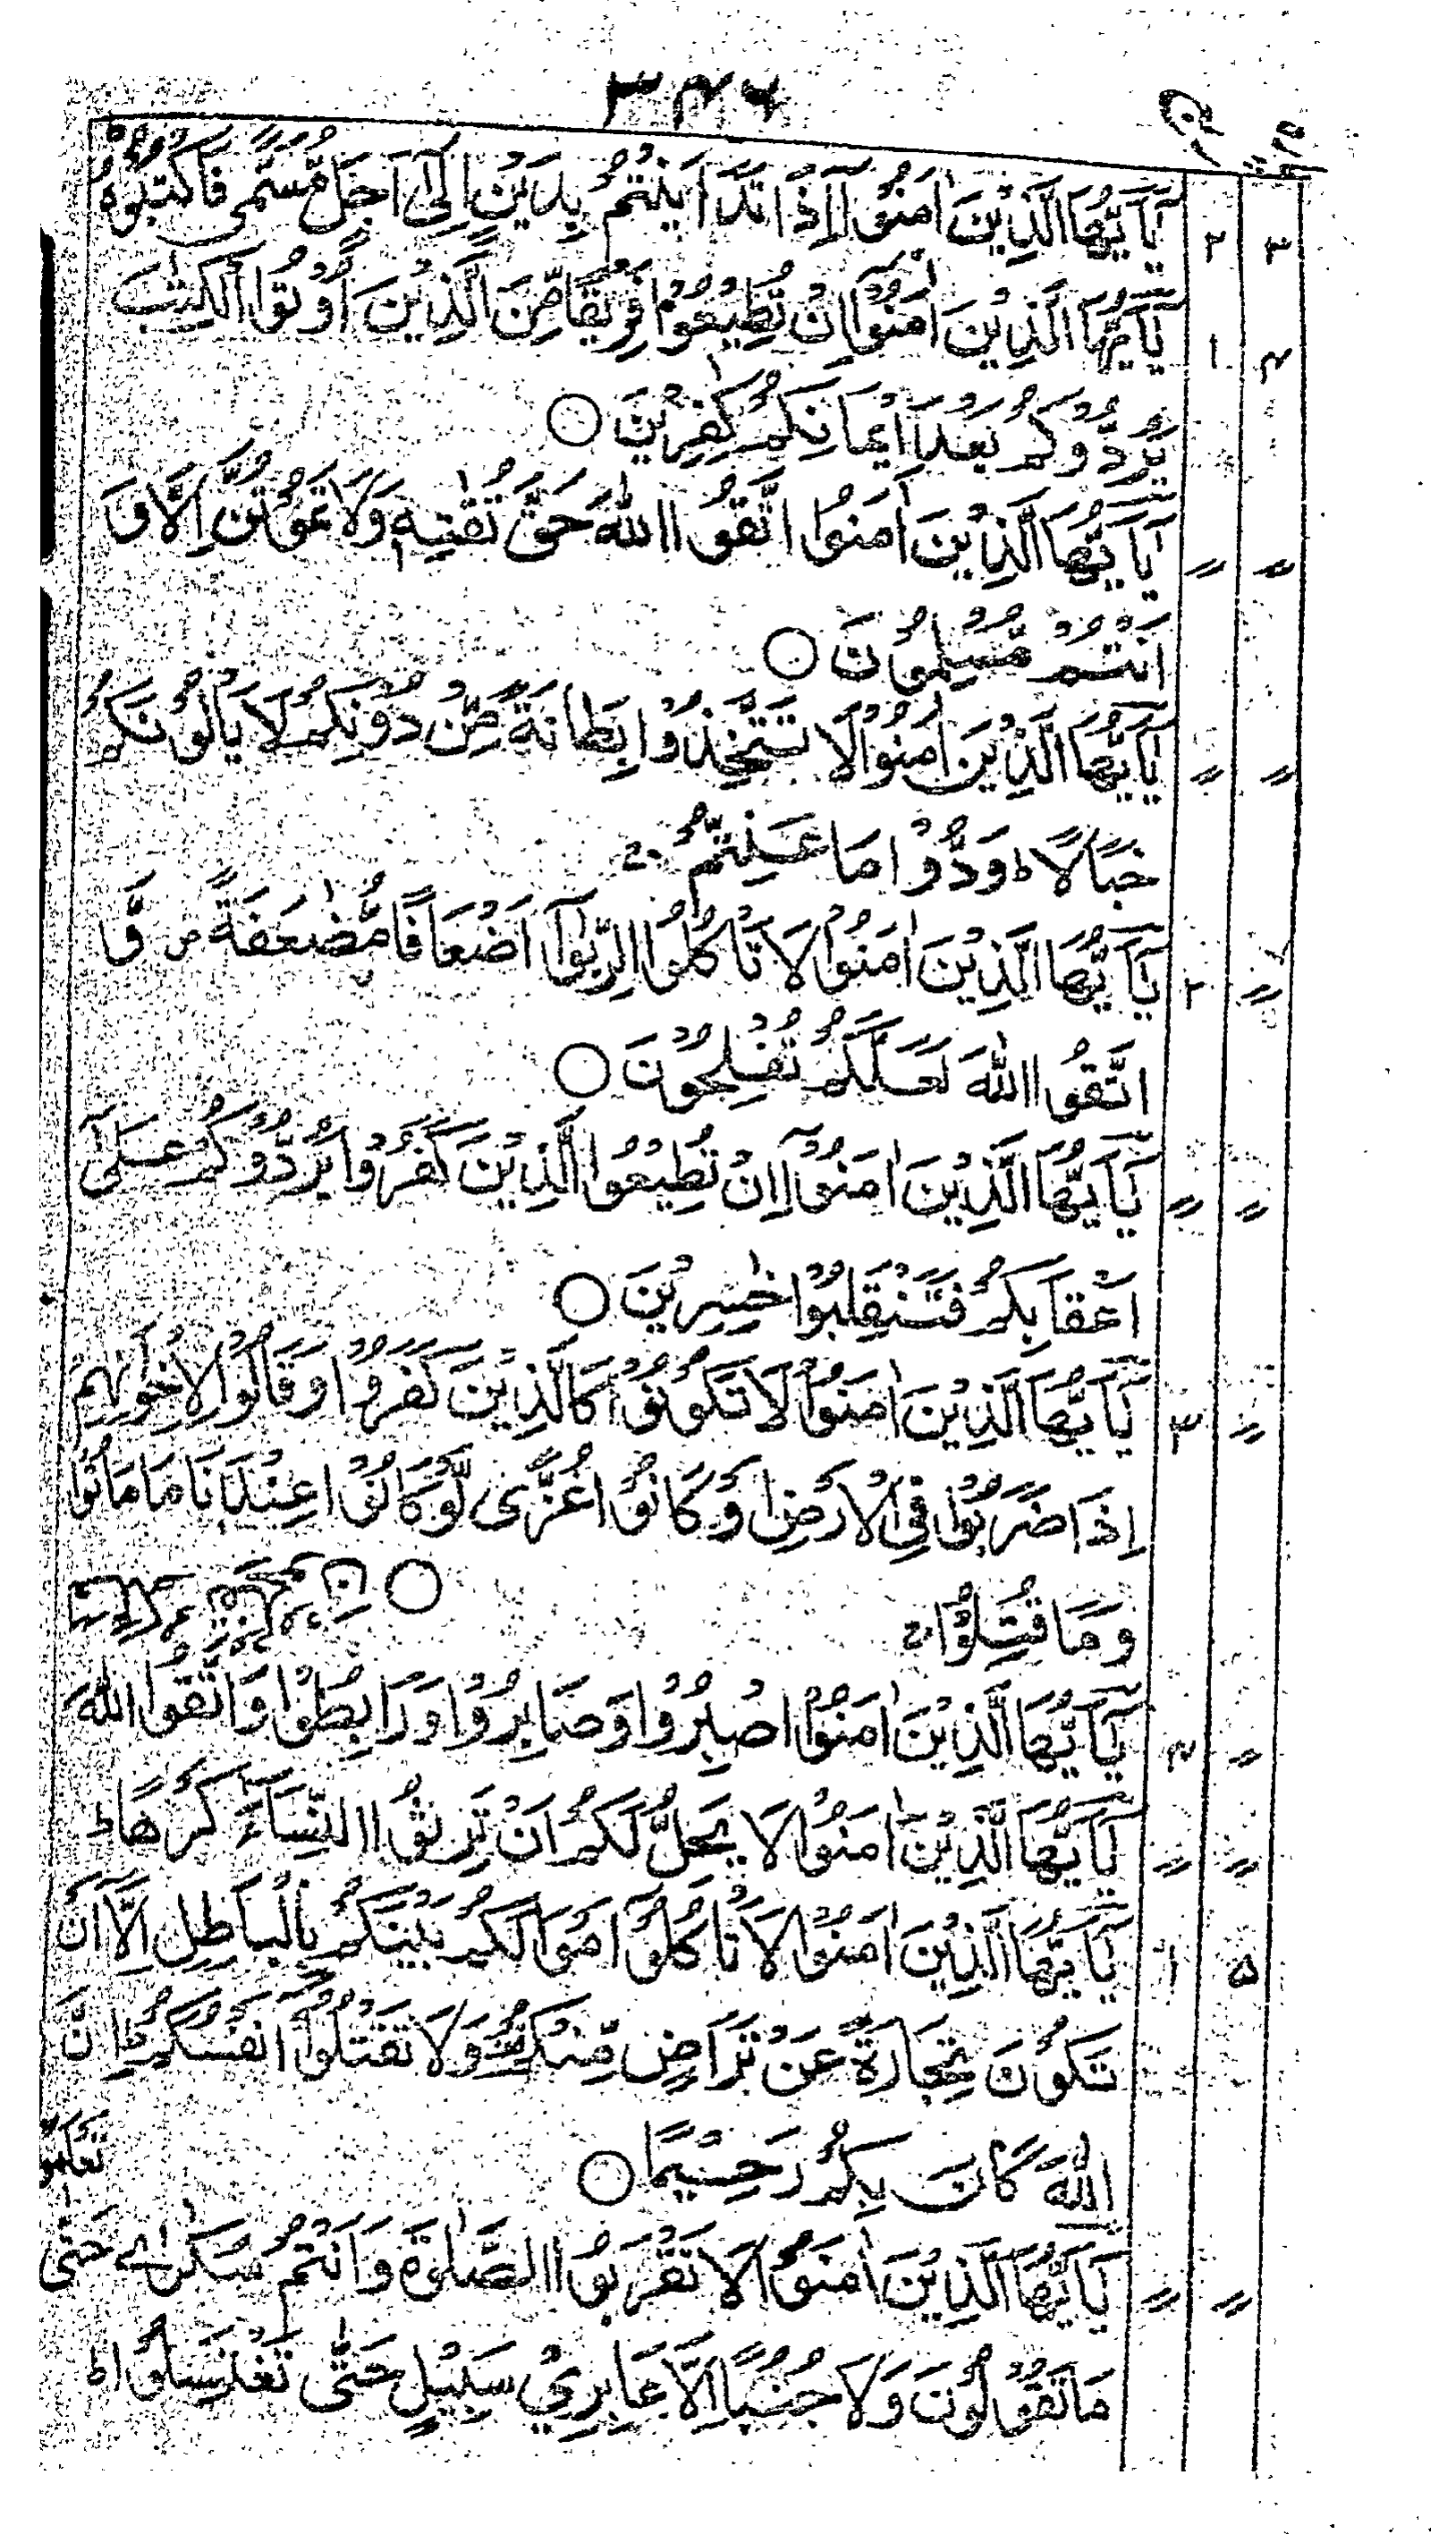 ۳۴۶
۳ ۲ يٰٓاَيُّهَا الَّذِيْنَ اٰمَنُوْٓا اِذَا تَدَايَنْتُمْ بِدَيْنٍ اِلٰٓى اَجَلٍ مُّسَمًّى فَاكْتُبُوْهُ
۴ ۱ يٰٓاَيُّهَا الَّذِيْنَ اٰمَنُوْٓا اِنْ تُطِيْعُوْا فَرِيْقًا مِّنَ الَّذِيْنَ اُوْتُوا الْكِتٰبَ
يَرُدُّوْكُمْ بَعْدَ اِيْمَانِكُمْ كٰفِرِيْنَ ○
〃 〃 يٰٓاَيُّهَا الَّذِيْنَ اٰمَنُوا اتَّقُوا اللّٰهَ حَقَّ تُقٰتِهٖ وَلَا تَمُوْتُنَّ اِلَّا وَ
اَنْتُمْ مُّسْلِمُوْنَ ○
〃 〃 يٰٓاَيُّهَا الَّذِيْنَ اٰمَنُوْا لَا تَتَّخِذُوْا بِطَانَةً مِّنْ دُوْنِكُمْ لَا يَاْلُوْنَكُمْ
خَبَالًا ط وَدُّوْا مَا عَنِتُّمْ ج
〃 ۲ يٰٓاَيُّهَا الَّذِيْنَ اٰمَنُوْا لَا تَاْكُلُوا الرِّبٰوٓا اَضْعَافًا مُّضٰعَفَةً ص وَّ
اتَّقُوا اللّٰهَ لَعَلَّكُمْ تُفْلِحُوْنَ ○
〃 〃 يٰٓاَيُّهَا الَّذِيْنَ اٰمَنُوْٓا اِنْ تُطِيْعُوا الَّذِيْنَ كَفَرُوْا يَرُدُّوْكُمْ عَلٰٓى
اَعْقَابِكُمْ فَتَنْقَلِبُوْا خٰسِرِيْنَ ○
〃 ۳ يٰٓاَيُّهَا الَّذِيْنَ اٰمَنُوْا لَا تَكُوْنُوْا كَالَّذِيْنَ كَفَرُوْا وَقَالُوْا لِاِخْوَانِهِمْ
اِذَا ضَرَبُوْا فِى الْاَرْضِ اَوْ كَانُوْا غُزًّى لَّوْ كَانُوْا عِنْدَنَا مَا مَاتُوْا
وَمَا قُتِلُوْا ج ○
〃 ۴ يٰٓاَيُّهَا الَّذِيْنَ اٰمَنُوا اصْبِرُوْا وَصَابِرُوْا وَرَابِطُوْا وَاتَّقُوا اللّٰهَ
〃 〃 يٰٓاَيُّهَا الَّذِيْنَ اٰمَنُوْا لَا يَحِلُّ لَكُمْ اَنْ تَرِثُوا النِّسَآءَ كَرْهًا ط
۵ ۱ يٰٓاَيُّهَا الَّذِيْنَ اٰمَنُوْا لَا تَاْكُلُوْٓا اَمْوَالَكُمْ بَيْنَكُمْ بِالْبَاطِلِ اِلَّآ اَنْ
تَكُوْنَ تِجَارَةً عَنْ تَرَاضٍ مِّنْكُمْ وَلَا تَقْتُلُوْٓا اَنْفُسَكُمْ ط اِنَّ
اللّٰهَ كَانَ بِكُمْ رَحِيْمًا ○
〃 〃 يٰٓاَيُّهَا الَّذِيْنَ اٰمَنُوْا لَا تَقْرَبُوا الصَّلٰوةَ وَاَنْتُمْ سُكٰرٰى حَتّٰى تَعْلَمُوْا
مَا تَقُوْلُوْنَ وَلَا جُنُبًا اِلَّا عَابِرِيْ سَبِيْلٍ حَتّٰى تَغْتَسِلُوْا ط